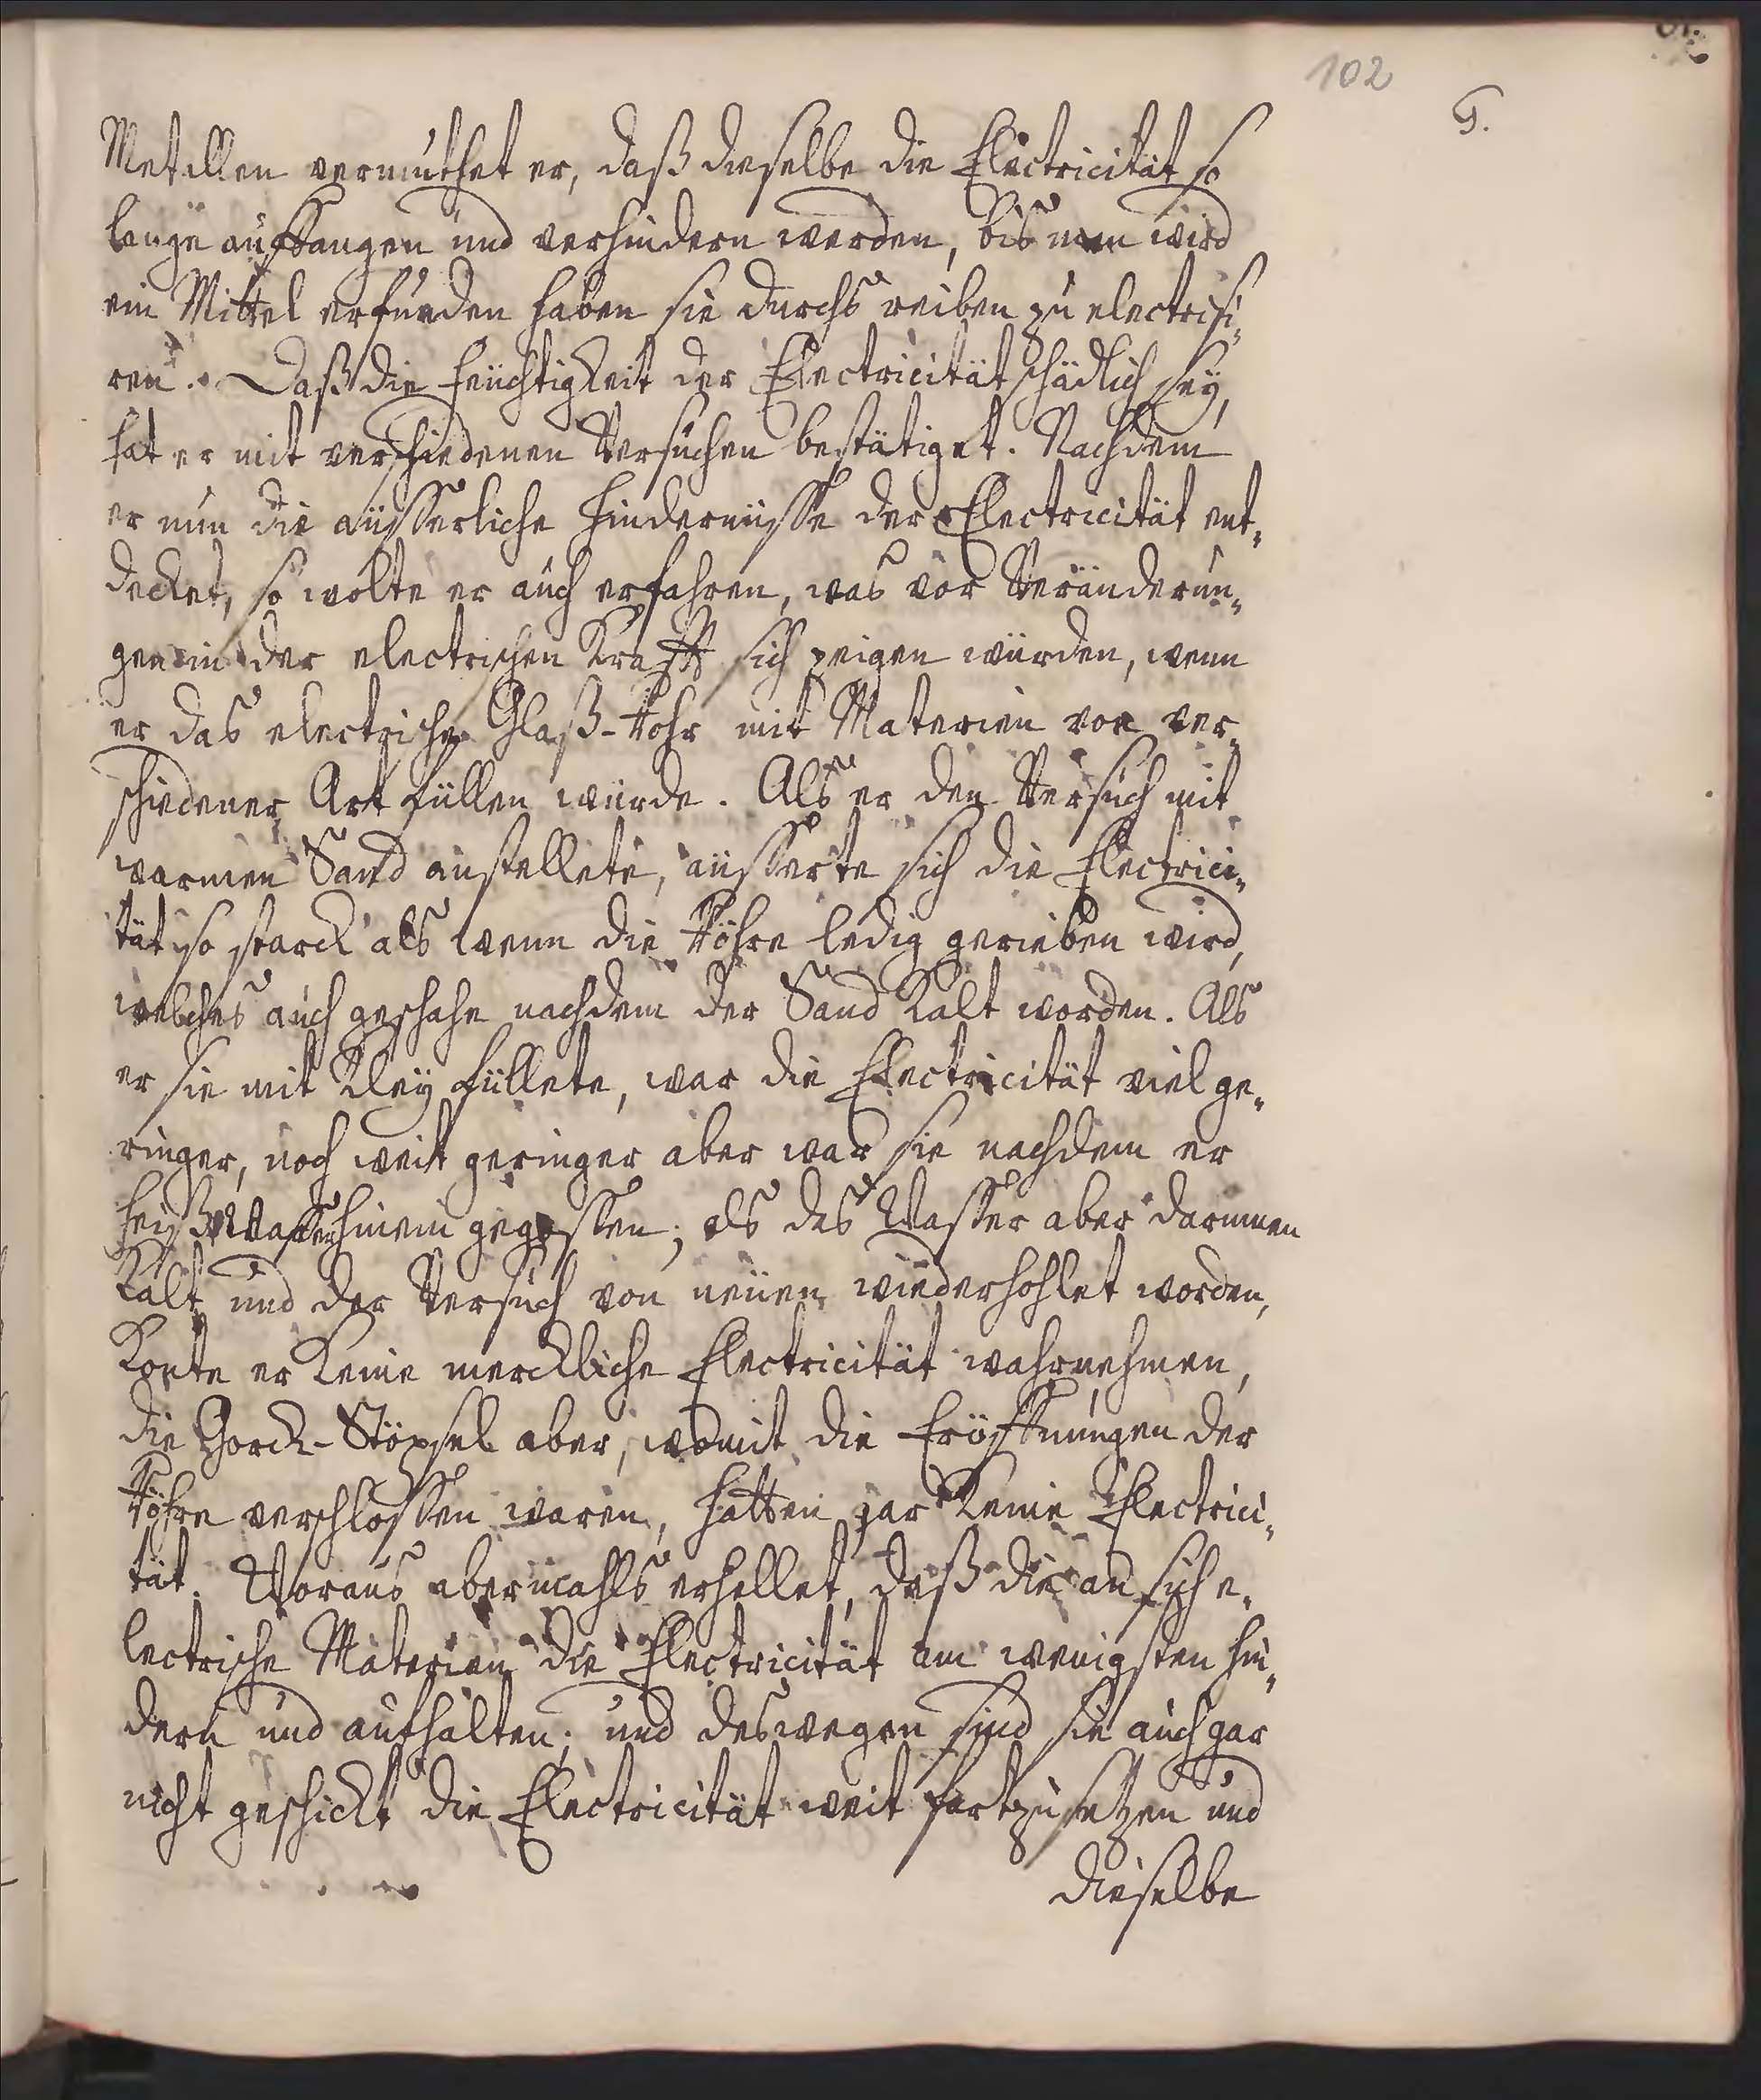 102
G.
Metallen vermuthet er, daß dieselbe die Electricität so
lange auffangen und verhindern werden, bis man wird
ein Mittel erfunden haben sie durchs reiben zu electrisi-
ren. Daß die Feüchtigkeit der Electricität schädlich seÿ,
hat er mit verschiedenen Versuchen bestätiget. Nachdem
er nun die aüsserliche Hindernüsse der Electricität ent-
decket, so wolte er auch erfahren, was vor Veränderun-
gen in der electrischen Krafft sich zeigen würden, wenn
er das electrische Glaß-Rohr mit Materien von ver-
schiedener Art füllen würde. Als er den Versuch mit
warmen Sand anstellete, aüsserte sich die Electrici-
tät so starck als wenn die Röhre ledig gerieben wird,
welches auch geschahe nachdem der Sand kalt worden. Als
er sie mit Kleÿ füllete, war die Electricität viel ge-
ringer, noch weit geringer aber war sie nachdem er
heiß Wasser hinein gegossen; als das Wasser aber darinnen
kalt und der Versuch von neüen wiederhohlet worden,
konte er keine merckliche Electricität wahrnehmen,
die Gorck-Stöpsel aber, womit die Eröffnungen der
Röhre verschlossen waren, hatten gar keine Electrici-
tät. Woraus abermahls erhellet, daß die an sich e-
lectrische Materien die Electricität am wenigsten hin-
dern und aufhalten; und deswegen sind sie auch gar
nicht geschickt die Electricität weit fortzusetzen und
dieselbe